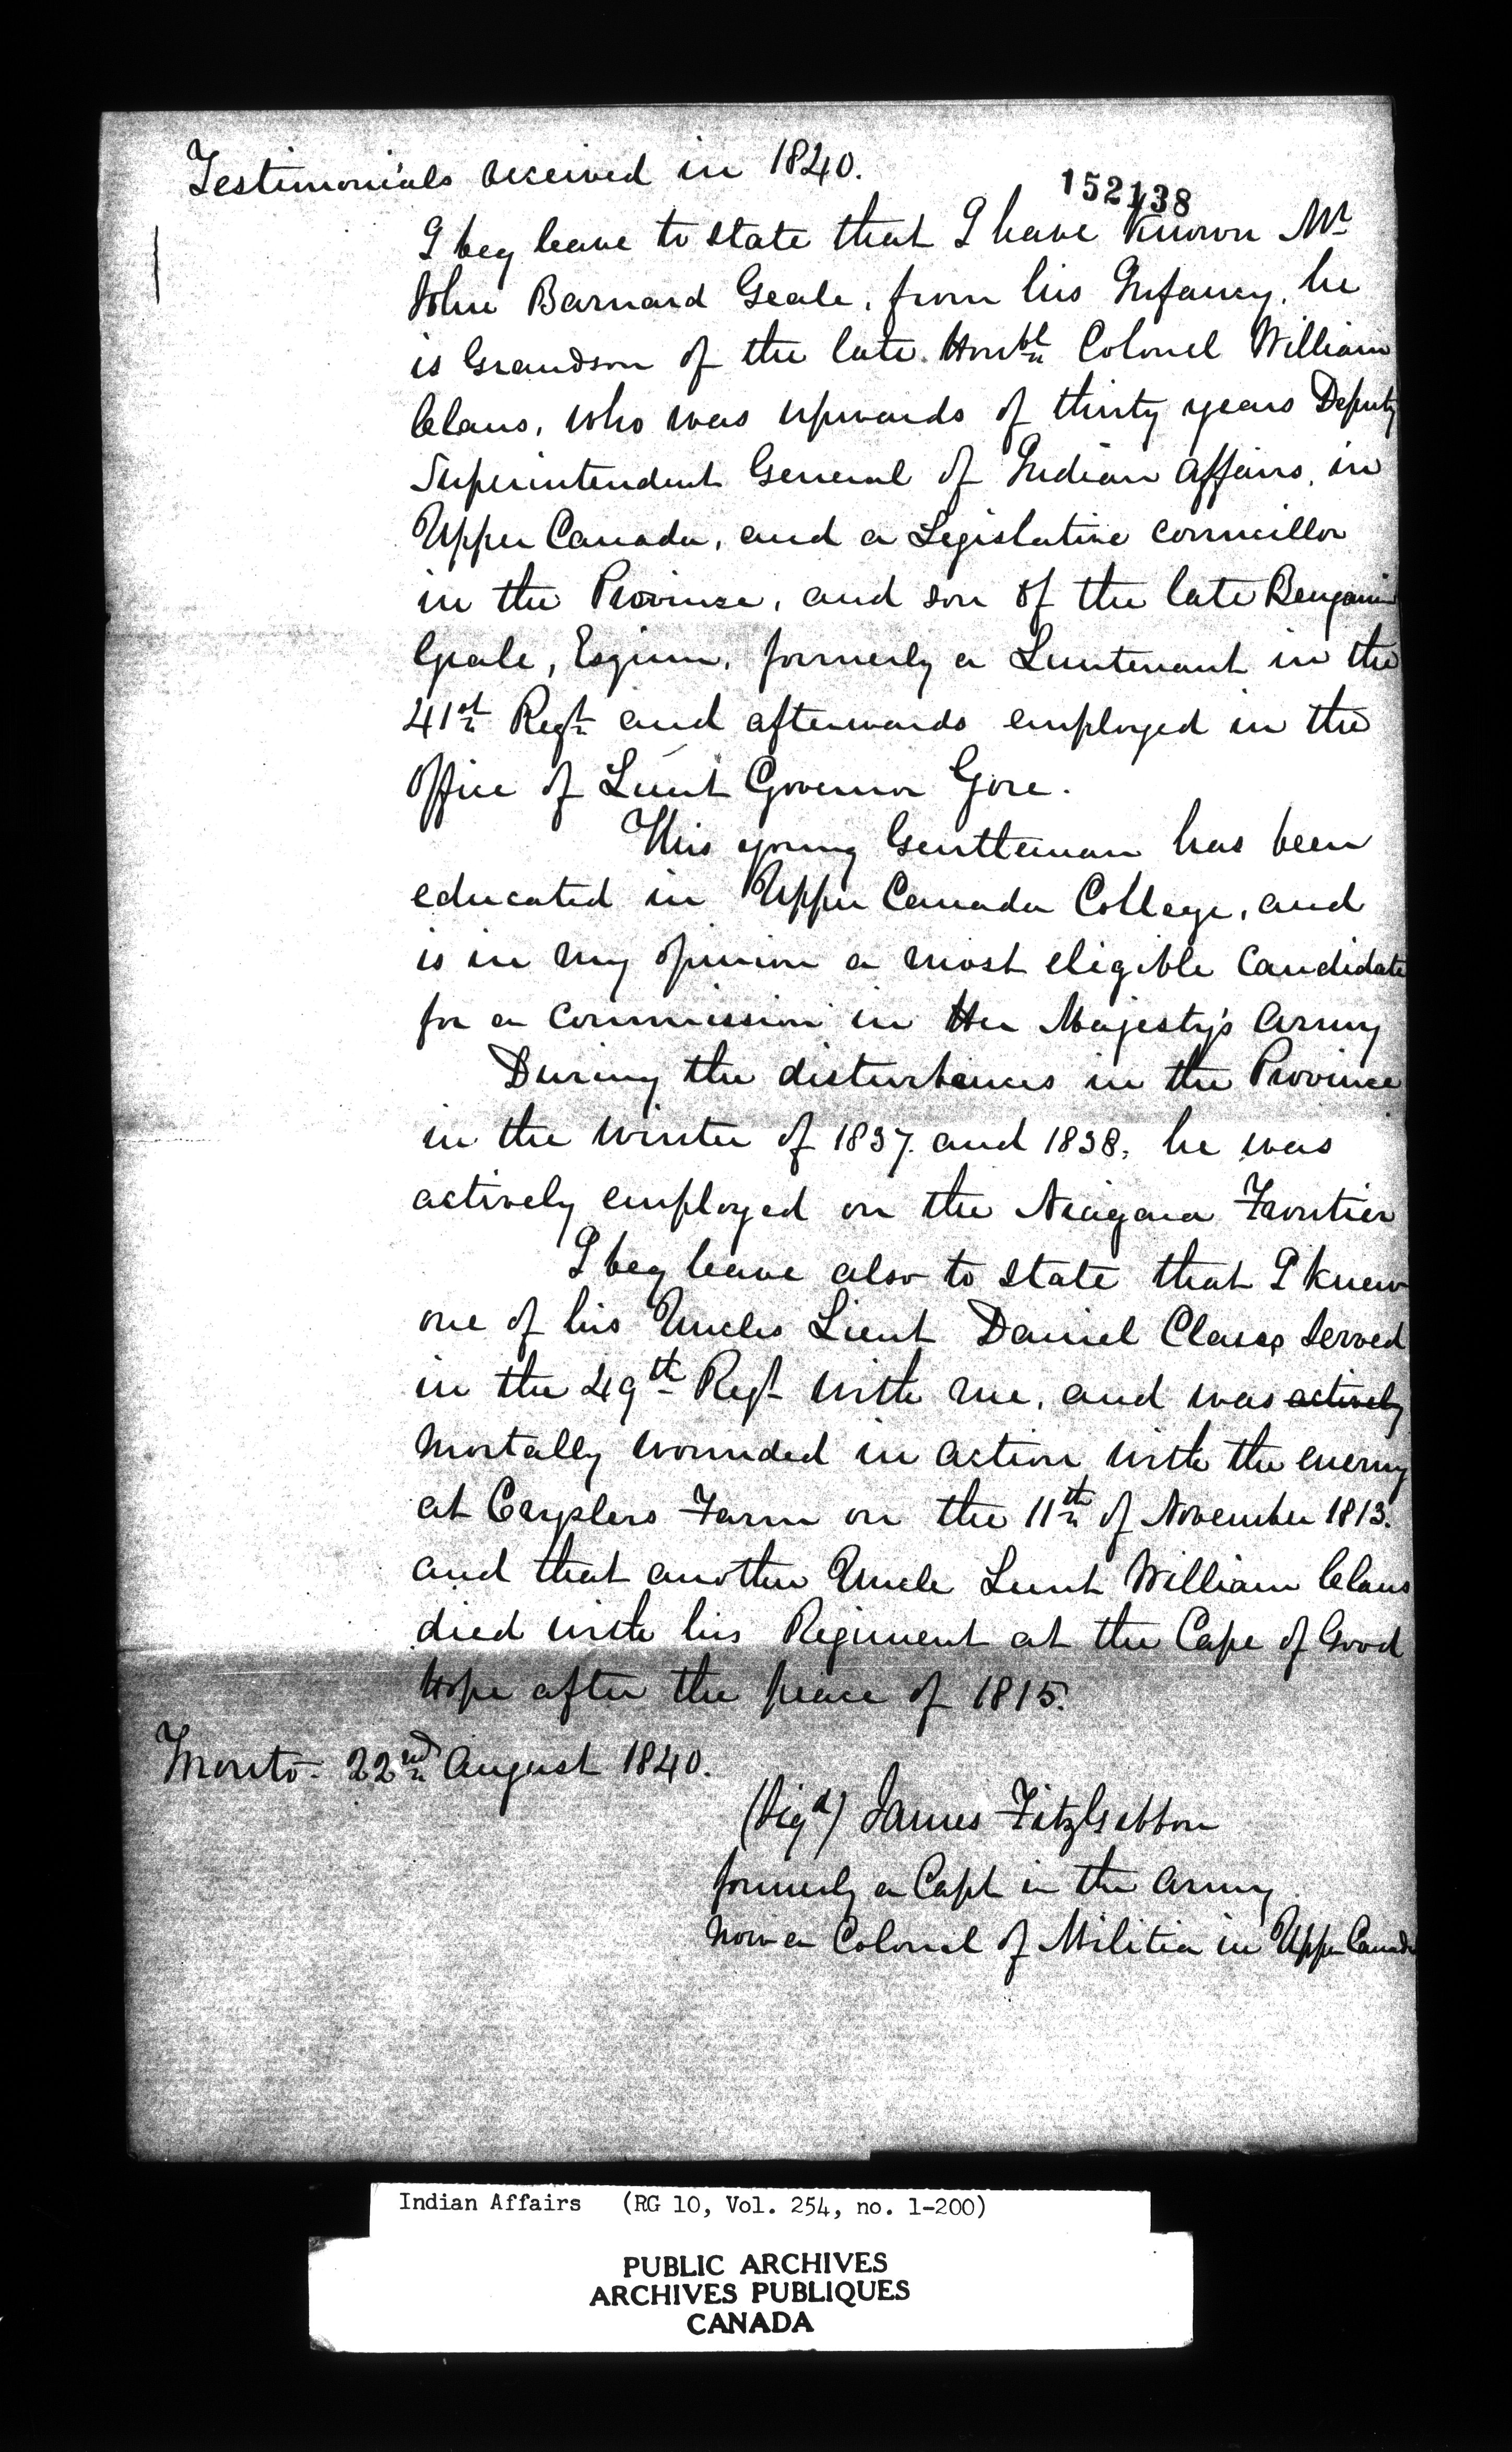 Testimonials received in 1840.
152138
I beg leave to state that I have known Mr
John Barnard Geale, from his Infancy, he
is Grandson of the late Honble Colonel William
Claus, who was upwards of thirty years Deputy
Superintendent General of Indian Affairs, in
Upper Canada, and a Legislative Councillor
in the Province, and son of the late Benjamin
Geale, Esquire, formerly a Lieutenant in the
41st Regt and afterwards employed in the
Office of Lieut Governor Gore.
This young Gentleman has been
educated in Upper Canada College, and
is in my opinion a most eligible Candidate
for a Commission in Her Majesty's Army
During the disturbances in the Province
in the Winter of 1837. and 1838, he was
actively employed on the Niagara Frontier
I beg leave also to state that I knew
one of his Uncles Lieut Daniel Claus served
in the 49th Regt with me, and was actively
mortally wounded in action with the enemy
at Cryslers Farm on the 11th of November 1813.
and that another Uncle Lieut William Claus
died with his Regiment at the Cape of Good
Hope after the peace of 1815.
Toronto - 22nd August 1840.
(Sigd) James FitzGibbon
formerly a Capt in the Army.
now a Colonel of Militia in Upper Canada
Indian Affairs (RG 10, Vol. 254, no. 1-200)
PUBLIC ARCHIVES
ARCHIVES PUBLIQUES
CANADA